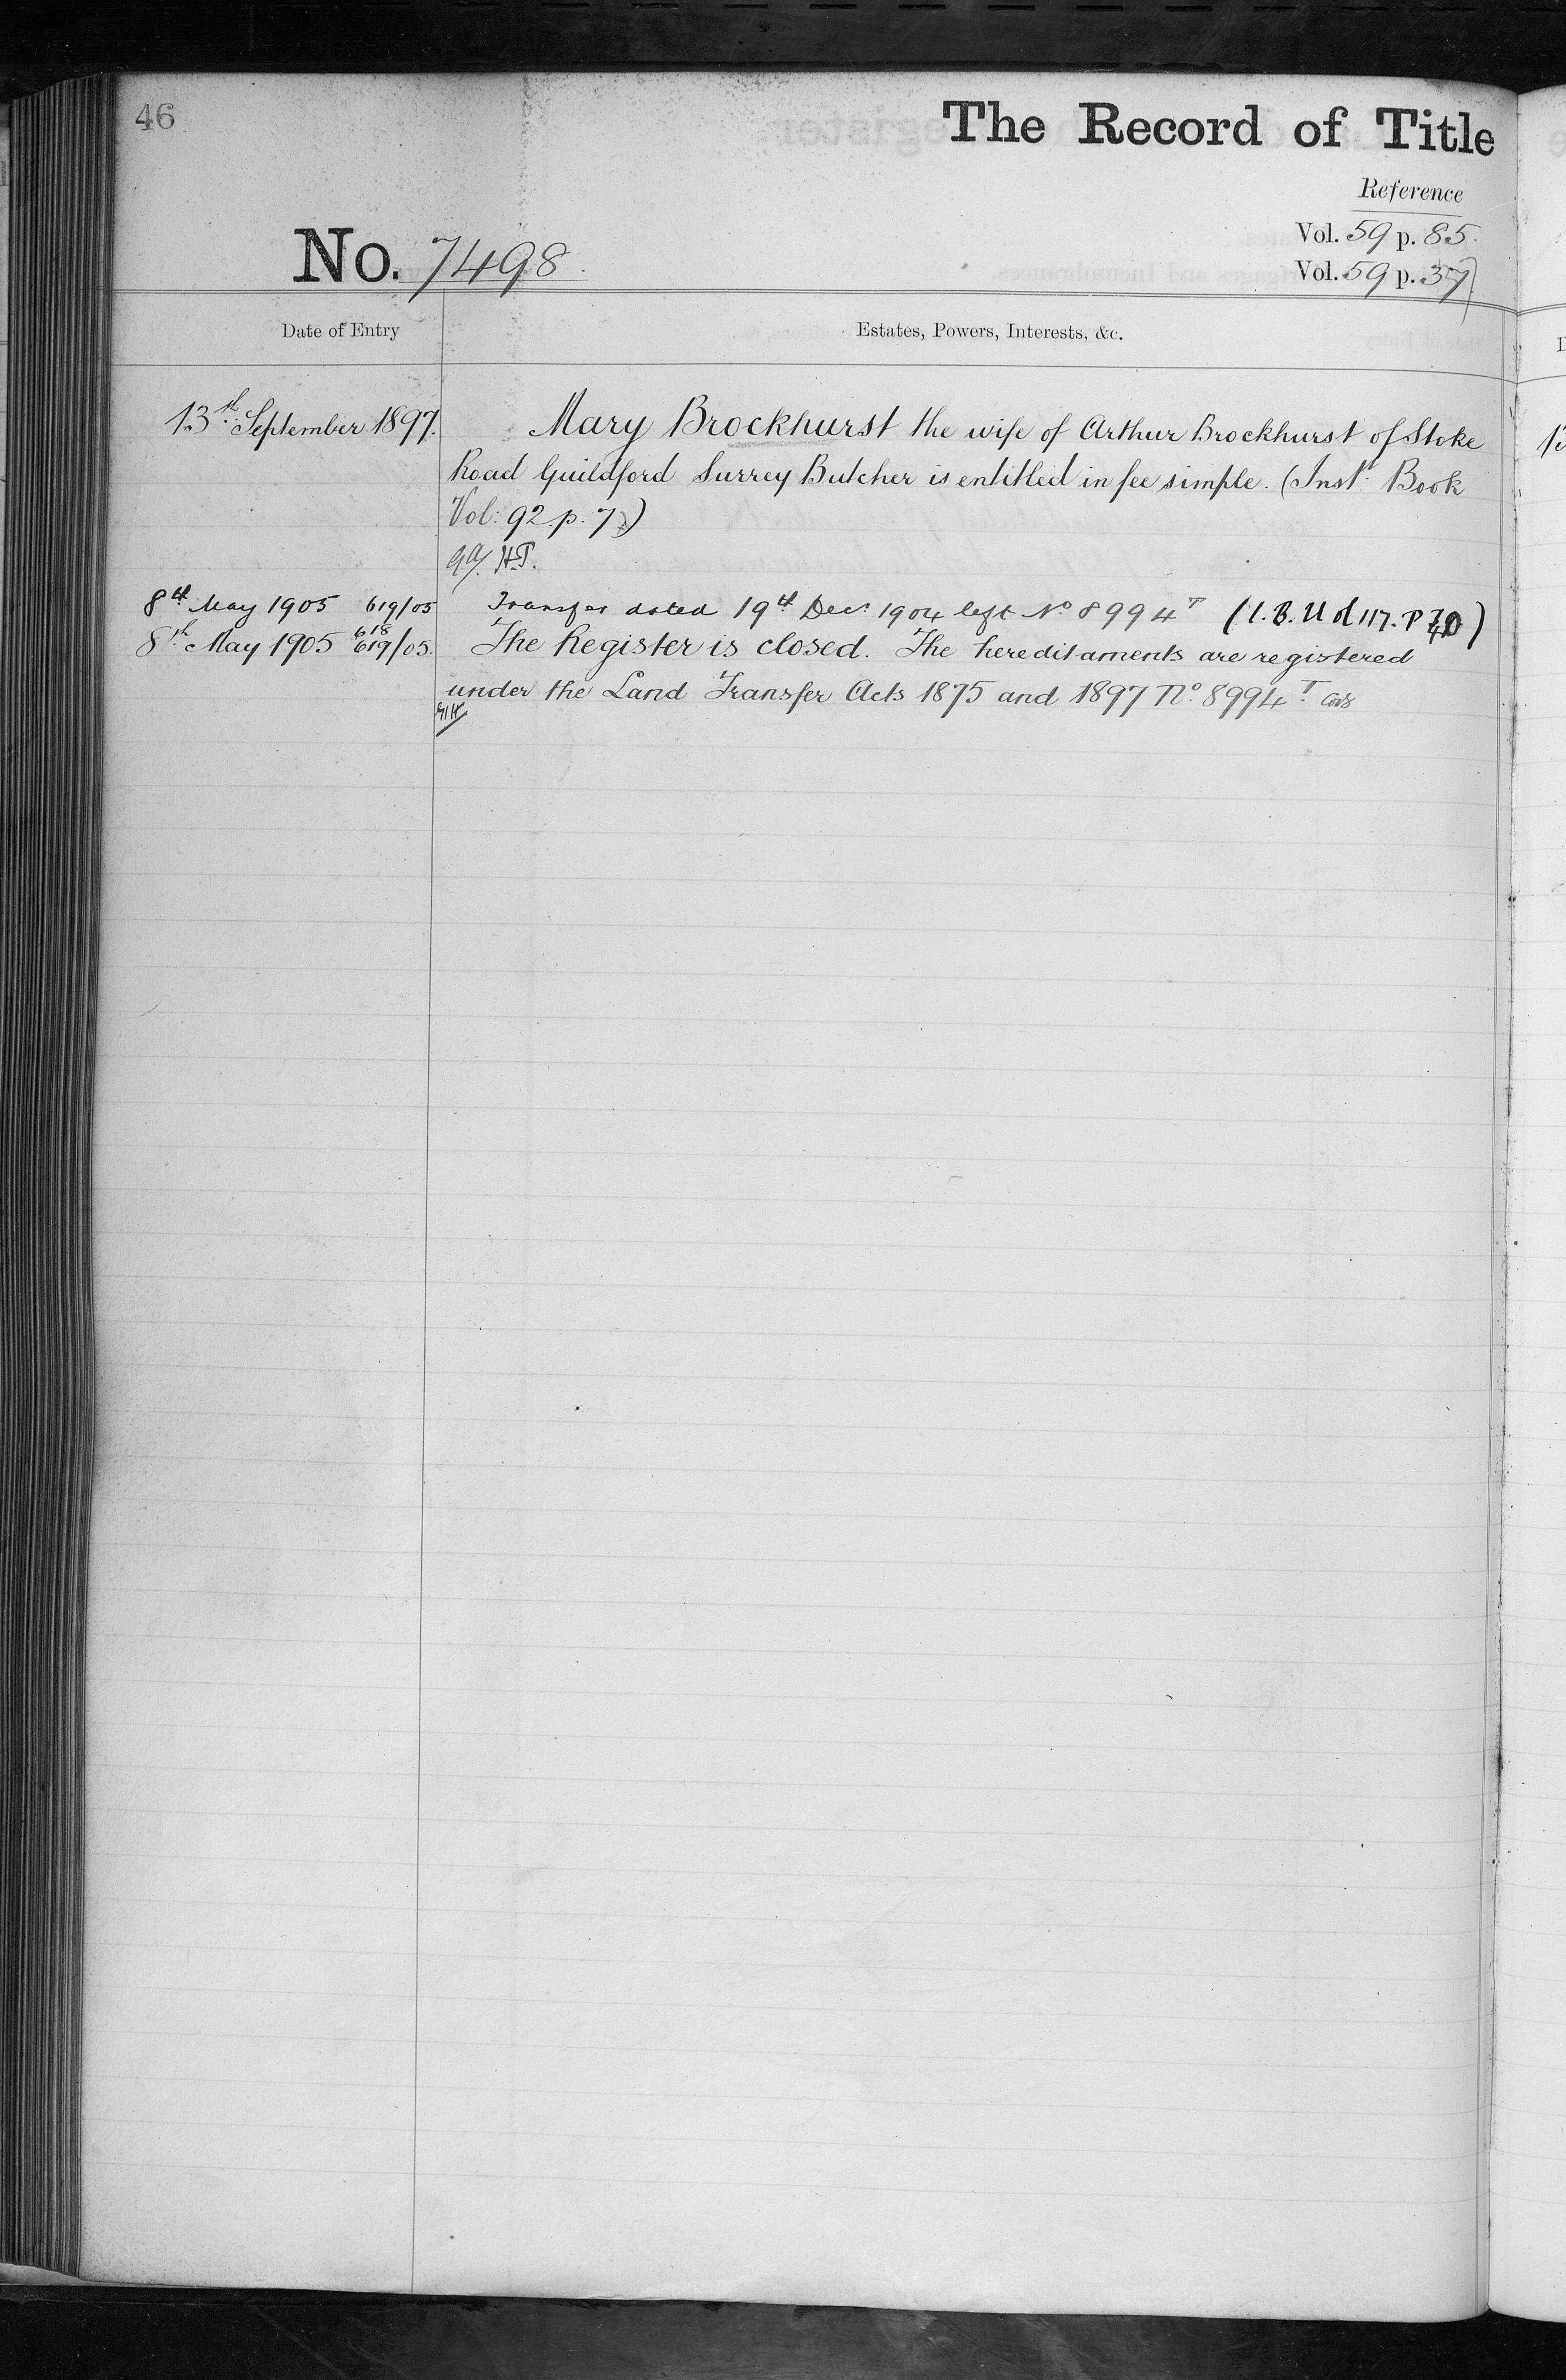 46
The Record of Title
Reference
Vol. 59 p. 85.
No. 7498.
Vol. 59 p. 37
Date of Entry
Estates, Powers, Interests, &c.
13th September 1897.
Mary Brockhurst the wife of Arthur Brockhurst of Stoke
Road Guildford Surrey Butcher is entitled in fee simple. (Inst. Book
Vol: 92. p. 7)
H.T.
8th May 1905 619/05
Transfer dated 19th Decr 1904 left No 8994T (I.B. Vol 117. P
8th May 1905 618 619/05.
The Register is closed. The hereditaments are registered
under the Land Transfer Acts 1875 and 1897 No. 8994T